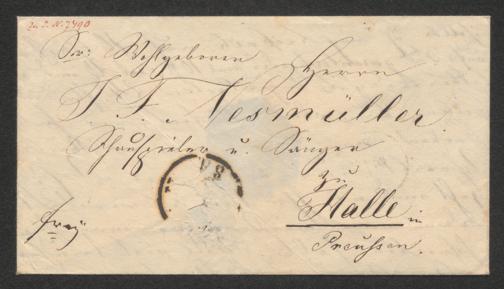 Zu I. N. 7490
Sr: Wohlgeboren
Herrn
J. F. Nesmüller
Schauspieler u. Sänger
zu
Halle in
Preussen.
frey